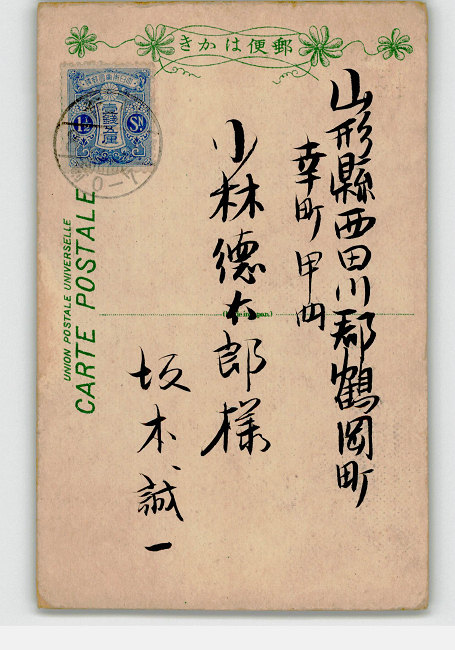 きかは便郵
山形縣西田川郡鶴岡町
幸町甲四
小林德太郎様
坂本誠一
UNION POSTALE UNIVERSELLE
CARTE POSTALE
壹錢五厘
1½
Sn